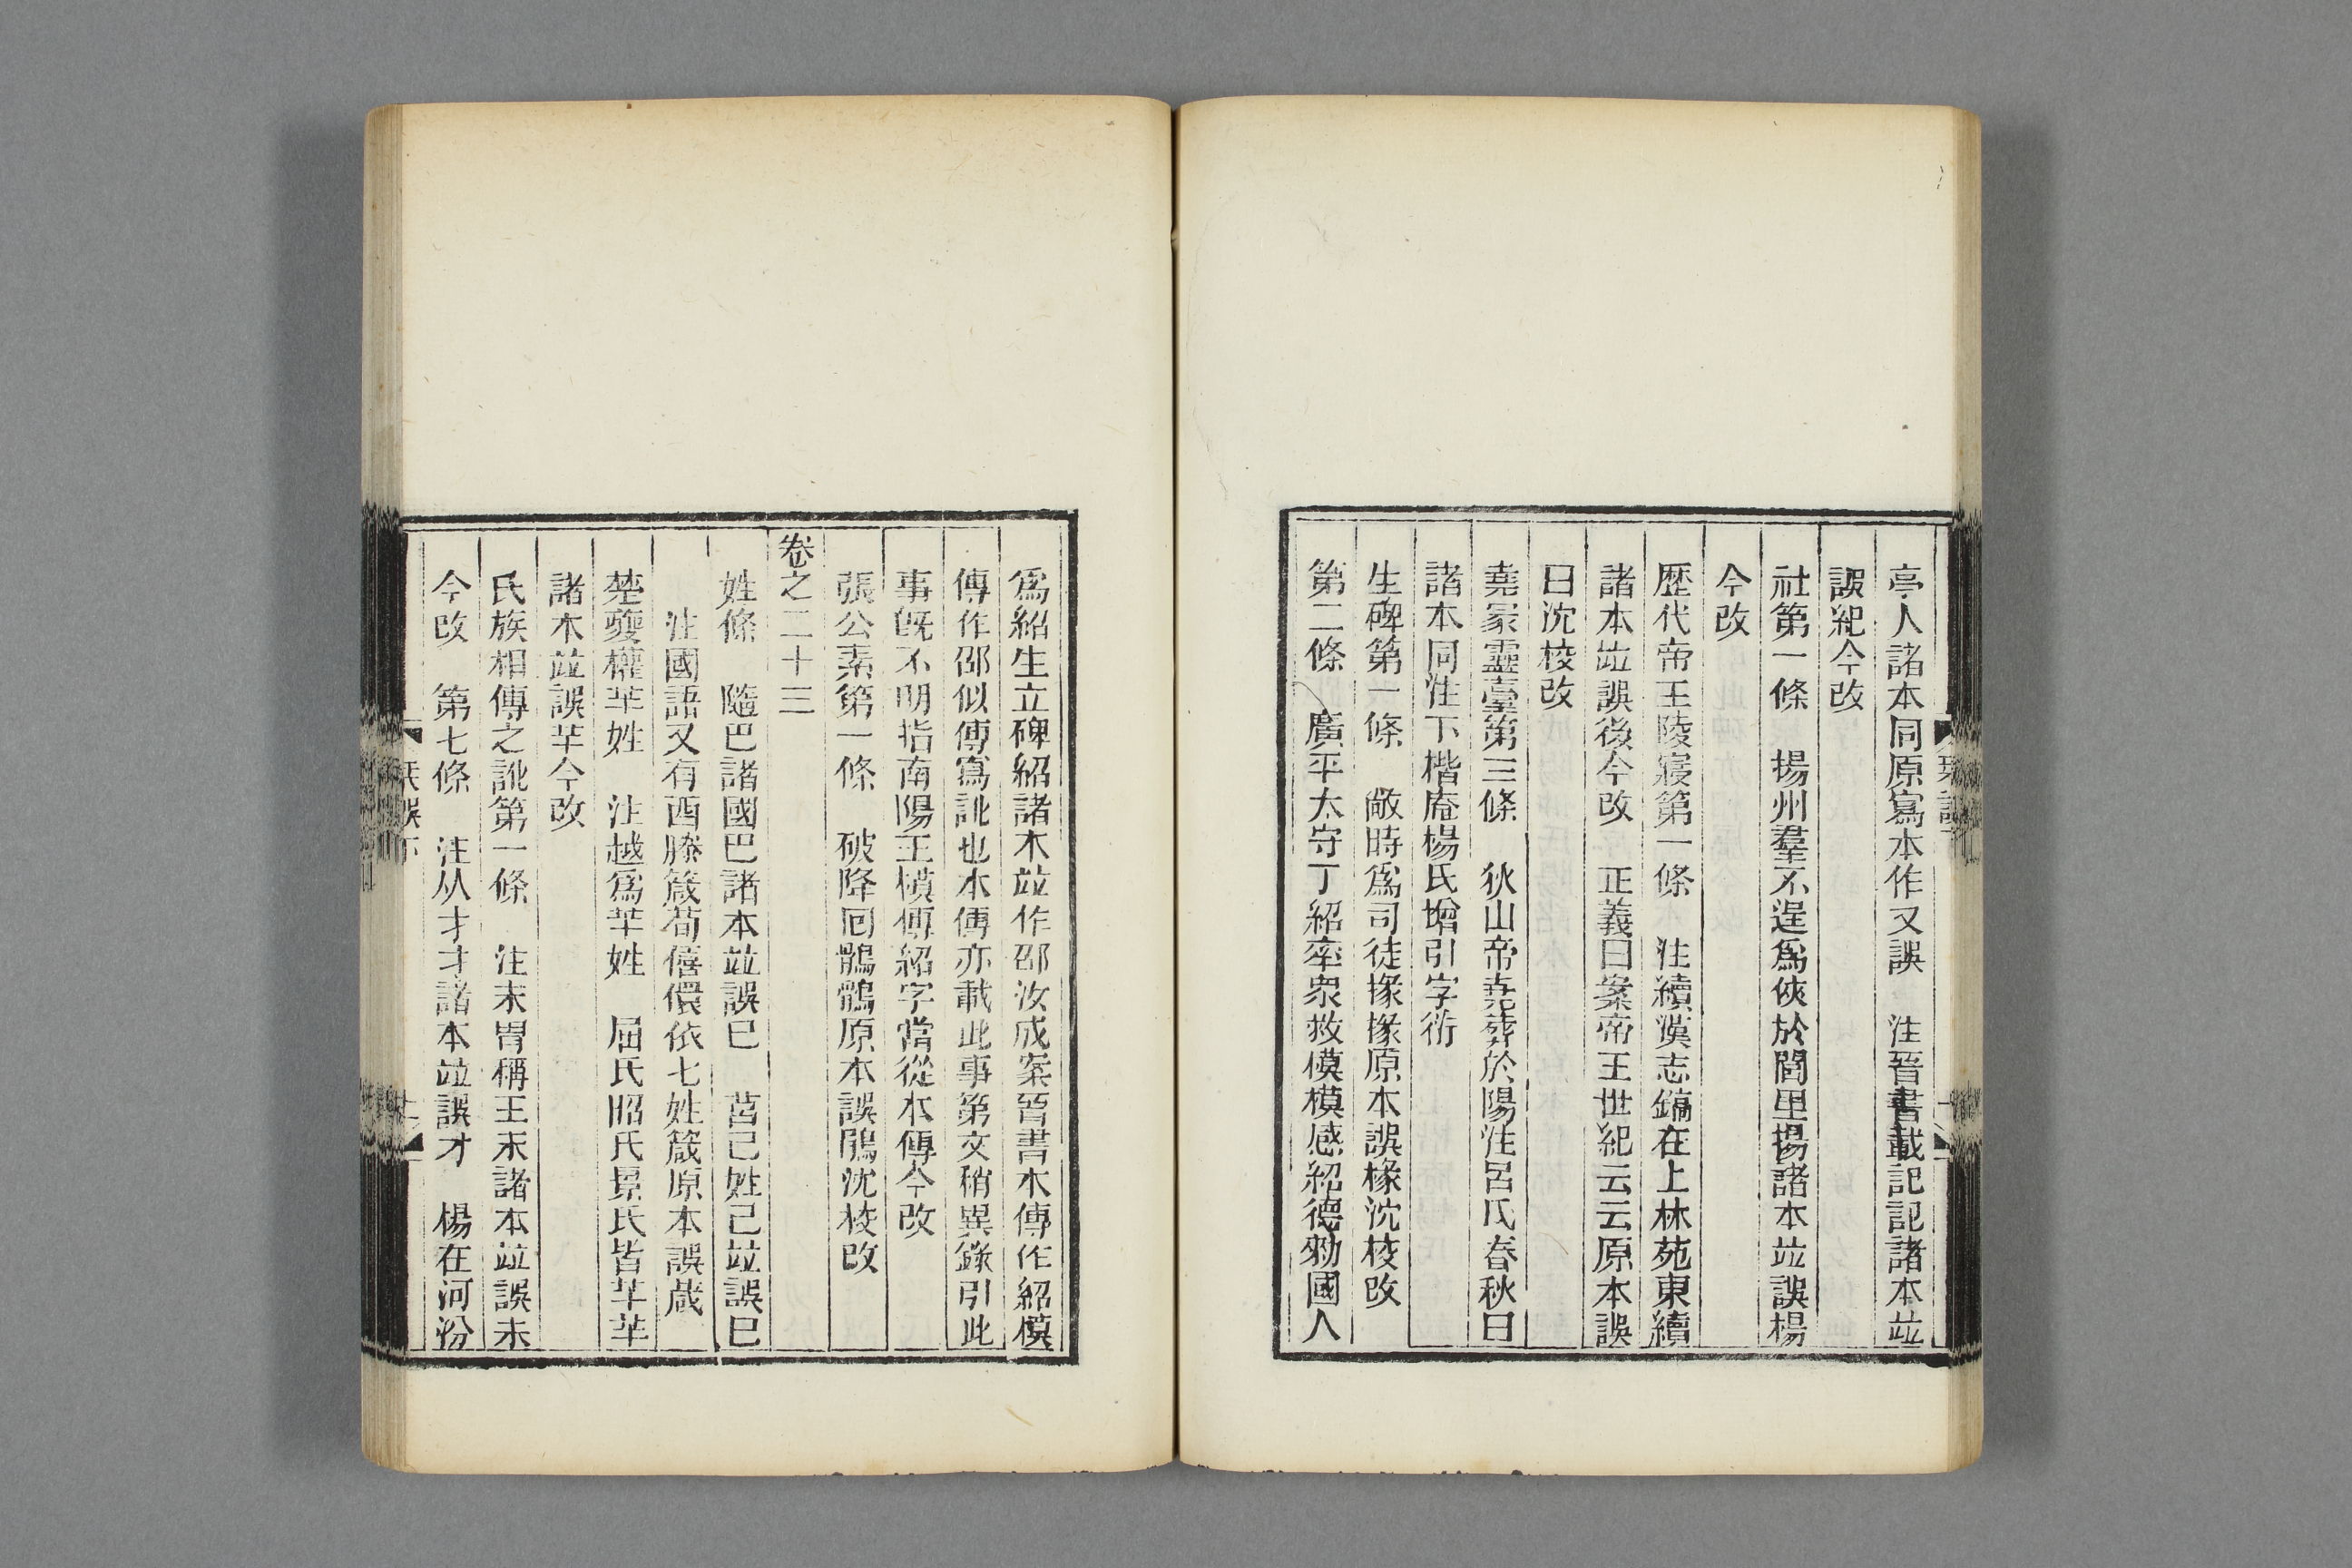 亭人諸本同原寫本作又誤　注晉書載記記諸本竝
誤紀今改
社第一條　揚州羣不逞爲俠於閭里揚諸本竝誤楊
今改
歷代帝王陵寢第一條　注續漢志鎬在上林苑東續
諸本竝誤後今改　正義曰案帝王世紀云云原本誤
日沈校改
堯冢靈臺第三條　狄山帝堯葬於陽注呂氏春秋曰
諸本同注下楷庵楊氏增引字衍
生碑第一條　敞時爲司徒掾掾原本誤椽沈校改
第二條　廣平太守丁紹率衆救模模感紹德勑國人
爲紹生立碑紹諸本竝作邵汝成案晉書本傳作紹模
傳作邵似傳寫訛也本傳亦載此事第文稍異錄引此
事旣不明指南陽王模傳紹字當從本傳今改
張公素第一條　破降回鶻鶻原本誤鶻沈校改
卷之二十三
姓條　隨巴諸國巴諸本竝誤巳　莒己姓己竝誤巳
注國語又有酉滕箴荀僖儇依七姓箴原本誤葴
楚夔權羋姓　注越爲羋姓　屈氏昭氏景氏皆羋羋
諸本竝誤芊今改
氏族相傳之訛第一條　注末冑稱王末諸本竝誤未
今改　第七條　注从才才諸本竝誤才　楊在河汾